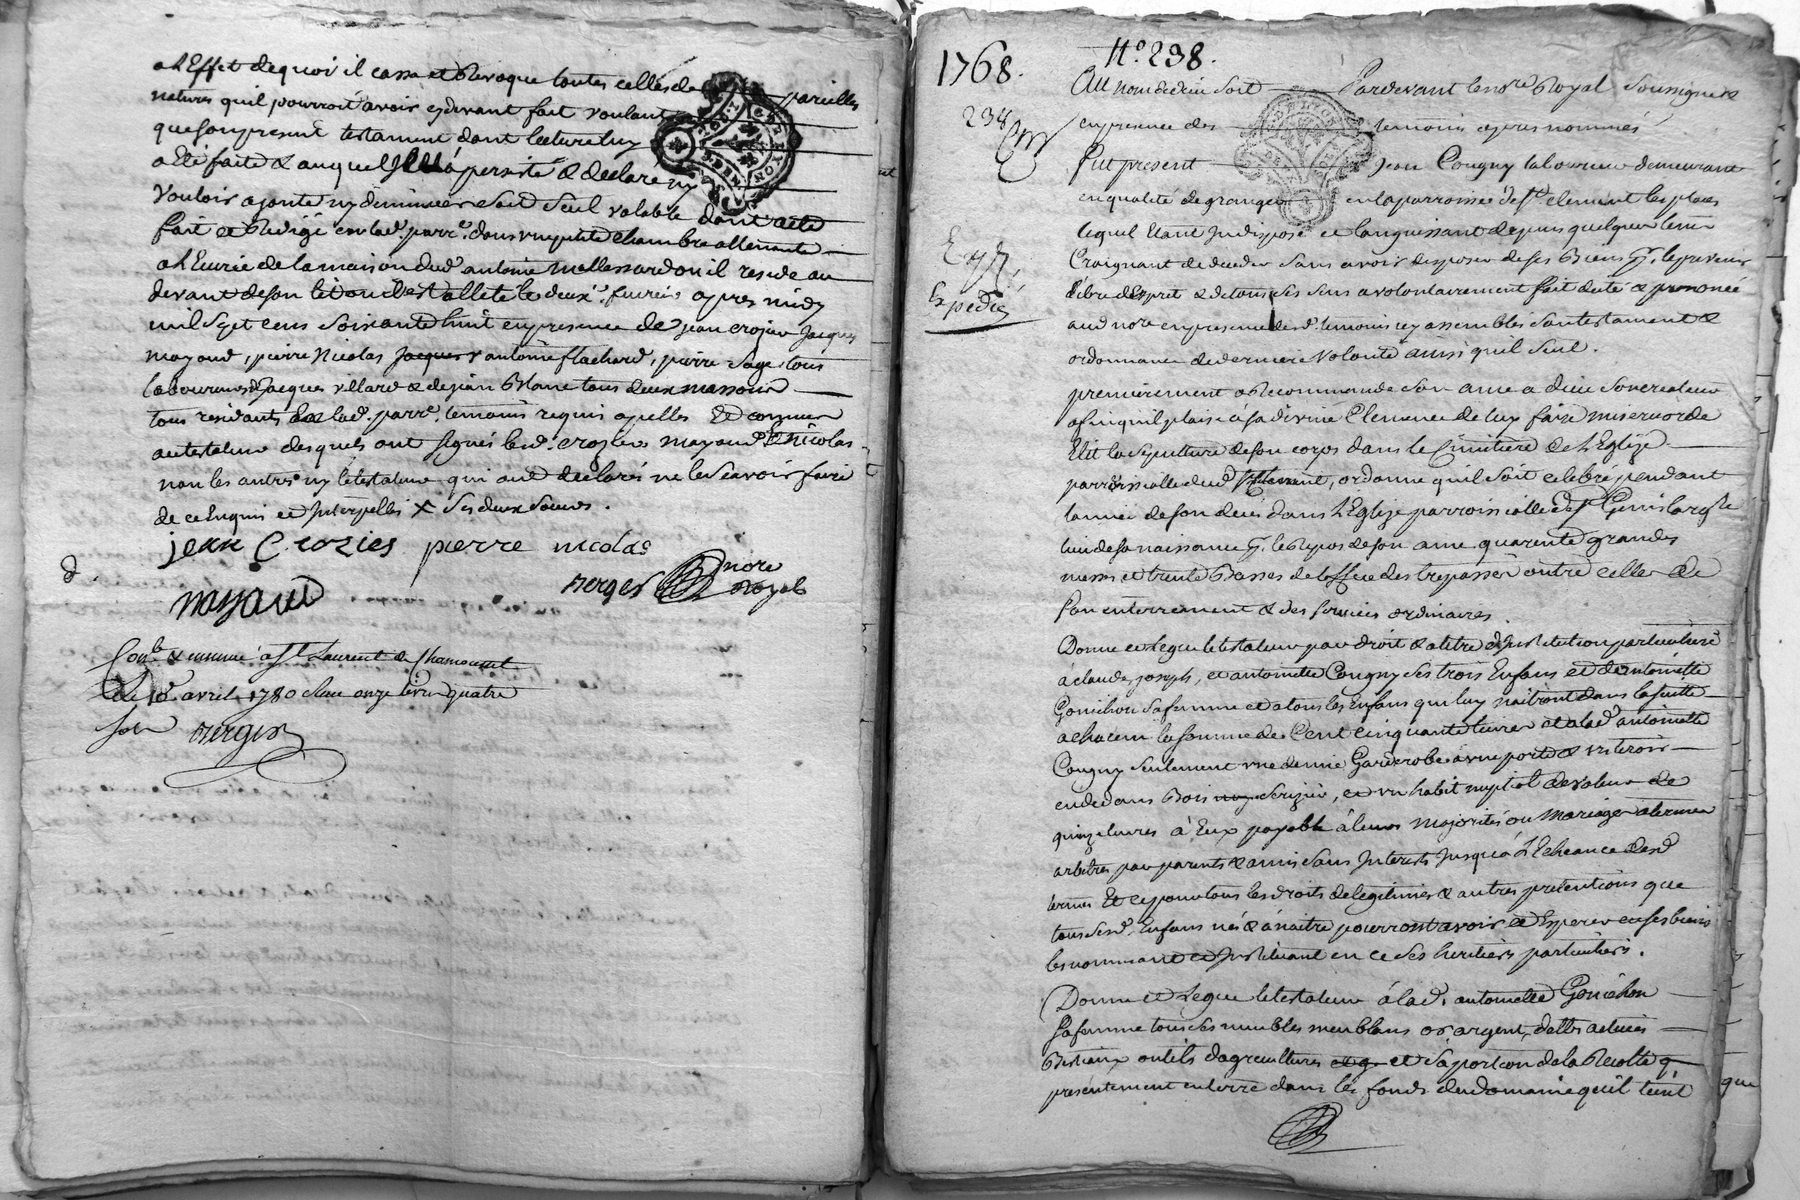 a l'Effet de quoi il casse et Revoque toutes celles de pareilles
natures qu'il pourroit avoir cy devant fait voulant
que son present testament dont lecture luy
a Eté faitte & auquel Il a persisté & declare ny
vouloir ajouter ny diminuer soit seul valable dont acte
fait et Redigé en lad. parr.e dans une petite chambre attenante
a l'Ecurie de la maison dud. antoine mallessard ou il reside au
devant de son lit ou il est allité le deux.e fevrier apres midy
mil Sept cens soixante huit en presence de jean crozier Jacques
mayaud, pierre Nicolas Jacques & antoine flachard, pierre Sage tous
laboureurs Jacques villard & de jean Blanc tous deux massons
tous residants en lad. parr.e temoins requis apellés et connus
au testateur desquels ont signés lesd. crozier mayaud & Nicolas
non les autres ny le testateur qui ont declarés ne le sçavoir faire
de ce Enquis et Interpellés X Ses deux soeurs.
jean Crozier pierre nicolas
d.
mayaud Berger nore Royal
Con.lé & insinué a St Laurent de Chamousset
Le 18 avril 1780 Reçu onze livres quatre
sols Berger
1768. N.o 238.
Au nom de dieu Soit Pardevant le no.re Royal soussigné &
238
en presence des temoins apres nommés
Fut present Jean Cougny laboureur demeurant
en qualité de granger en la parroisse de St. clement les places
Exp.
lequel Etant Indisposé et languissant depuis quelque tems
Craignant de deceder sans avoir disposer de ses Biens
Expedié
libre d'Esprit & de tous ses sens a volontairement fait dicté & prononcé
aud nore en presence desd. temoins cy assemblés son testament &
ordonnance de derniere Volonté ainsi qu'il suit.
premierement a Recommandé son ame a dieu son createur
afin qu'il plaise a sa divine Clemence de luy faire misericorde
Elit la sepulture de son corps dans le Cimitiere de l'Eglise
parroissialle dud St Clement, ordonne qu'il soit celebré pendant
l'année de son deces dans l'Eglise parroissialle de St Genis l'arg.re
lieu de sa naissance p. le Repos de son ame quarente grandes
messes et trente Basses de l'office des trepassés outre celles de
son enterrement & des services ordinaires.
Donne et Legue le testateur par droit & a titre d'Institution particuliere
à claude, joseph, et antoinette Cougny ses trois Enfans et d'antoinette
Gonichon sa femme et a tous les Enfans qui luy naitront dans la suitte
a chacun la somme de Cent cinquante livres et a lad. antoinette
Cougny seulement une demie Garderobe a une porte & un tiroir
en dedans Bois cerizier, et un habit nuptial de valeur de
quinze livres à Eux payable à leurs majorités ou mariage a termes
arbitrés par parents & amis sans Interets jusqu'à l'Echeance desd
termes Et ce pour tous les droits de legitimes & autres pretentions que
tous sesd. Enfans nés & à naitre pourront avoir et Esperer en ses biens
les nommant et Instituant en ce ses heritiers particuliers.
Donne et Legue le testateur à lad. antoinette Gonichon
sa femme tous ses meubles meublans or argent, dettes actives
Bestiaux outils d'agriculture et sa portion de la Recolte q.
presentement en terre dans les fonds du domaine qu'il tient
que